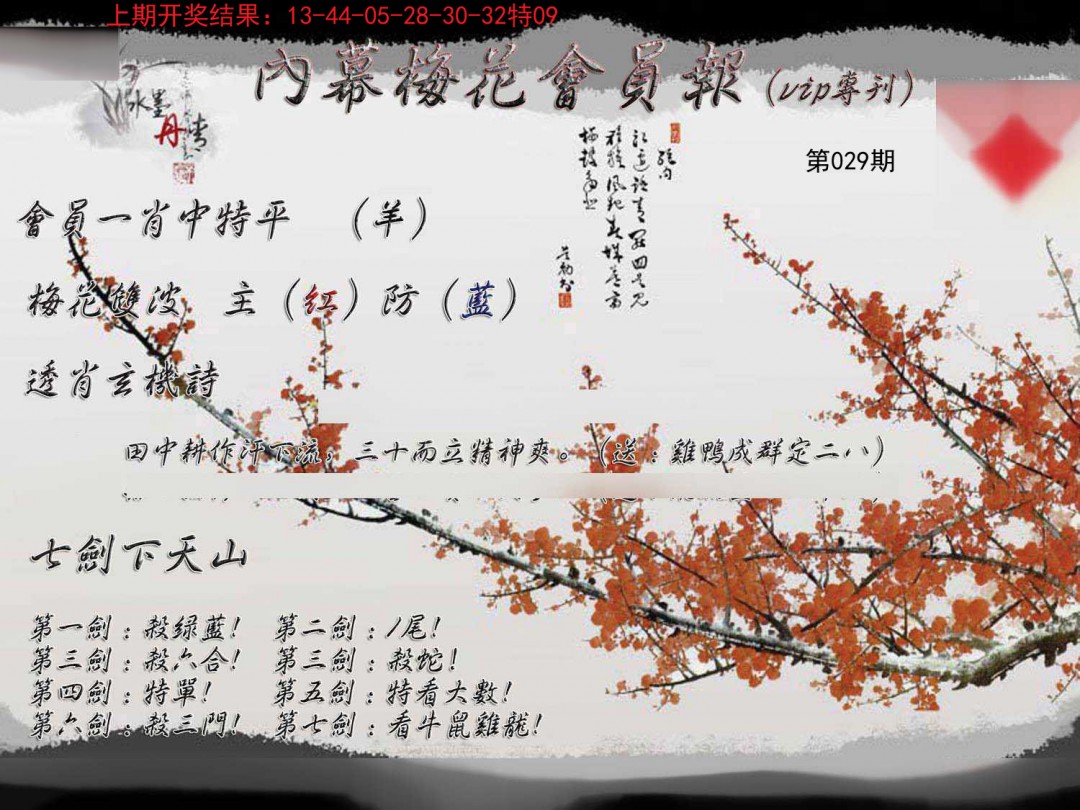 上期开奖结果：13-44-05-28-30-32特09
內幕梅花會員報（vip專刊）
水墨丹青
第029期
會員一肖中特平 （羊）
梅花雙波 主（红）防（藍）
透肖玄機詩
田中耕作汗下流，三十而立精神爽。（送：雞鴨成群定二八）
七劍下天山
第一劍：殺绿藍！ 第二劍：1尾！
第三劍：殺六合！ 第三劍：殺蛇！
第四劍：特單！ 第五劍：特看大數！
第六劍：殺三門！ 第七劍：看牛鼠雞龍！